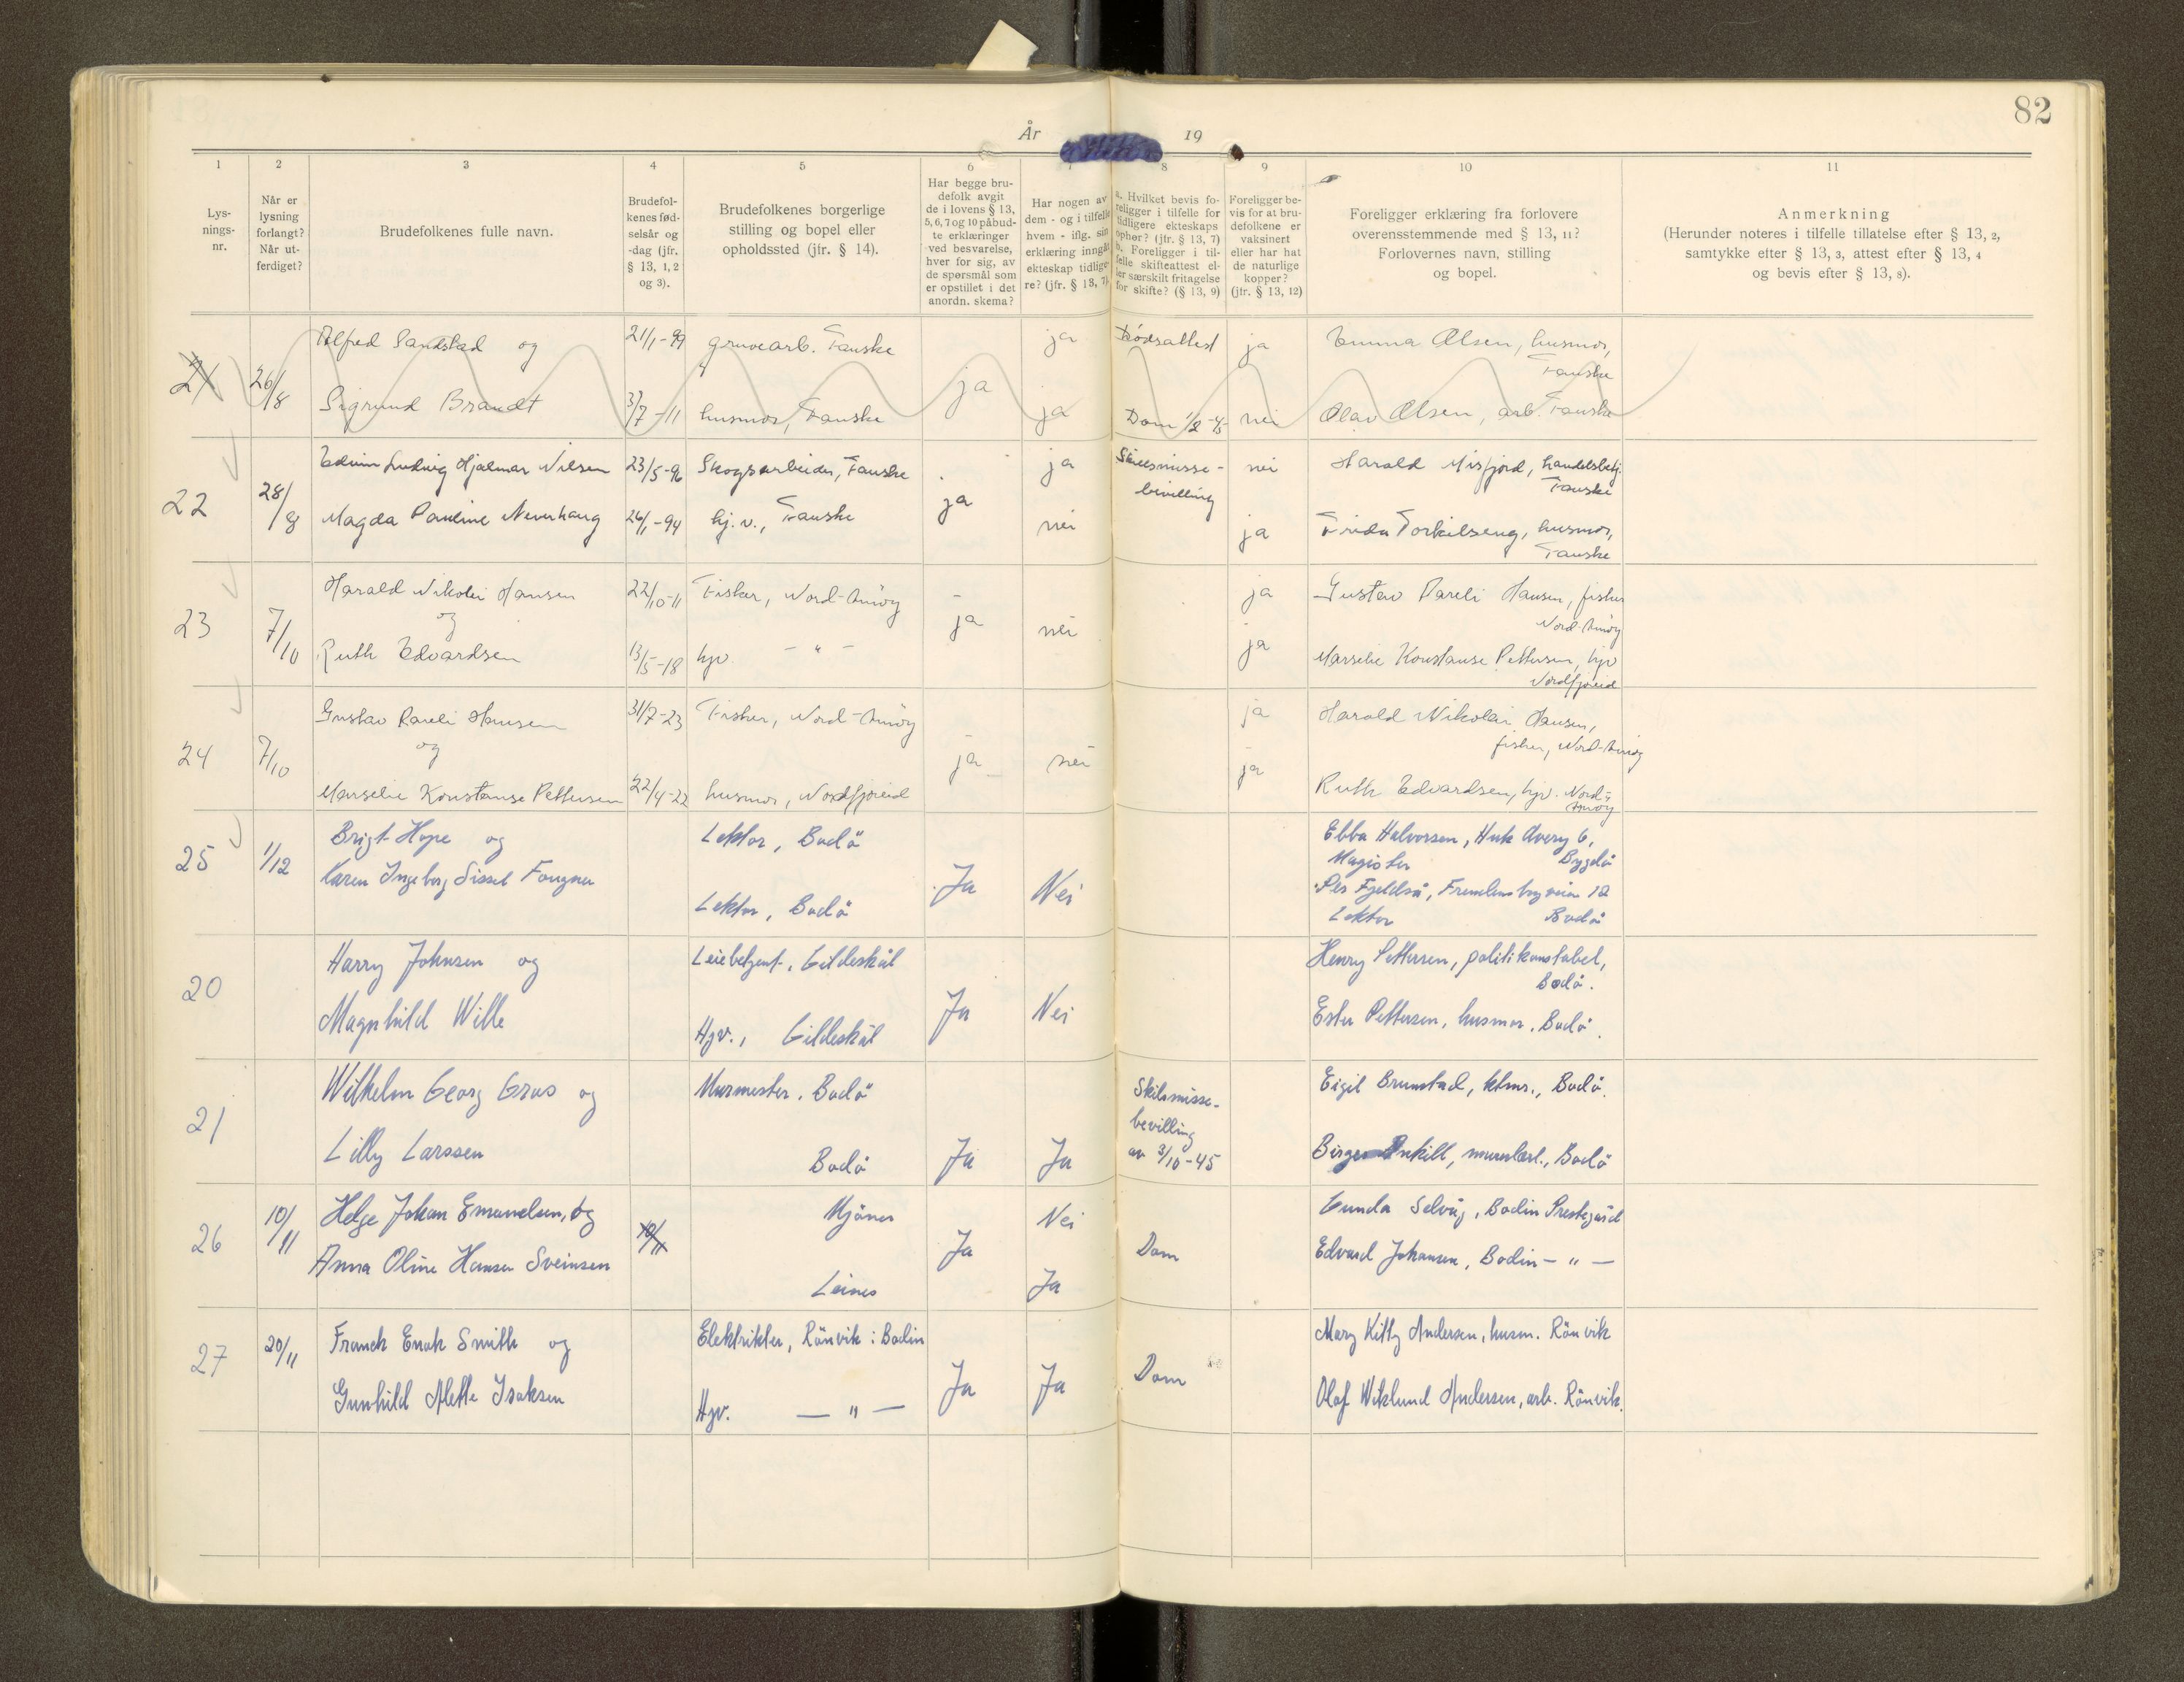 82
År 19
1 2 3 4 5 6 7 8 9 10 11
Lys-
nings-
nr.
Når er
lysning
forlangt?
Når ut-
ferdiget?
Brudefolkenes fulle navn.
Brudefol-
kenes fød-
selsår og
-dag (jfr.
§ 13, 1, 2
og 3).
Brudefolkenes borgerlige
stilling og bopel eller
opholdssted (jfr. § 14).
Har begge bru-
defolk avgit
de i lovens § 13,
5, 6, 7 og 10 påbud-
te erklæringer
ved besvarelse,
hver for sig, av
de spørsmål som
er opstillet i det
anordn. skema?
Har nogen av
dem - og i tilfelle
hvem - iflg. sin
erklæring inngåt
ekteskap tidlige-
re? (jfr. § 13, 7)
a. Hvilket bevis fo-
religger i tilfelle for
tidligere ekteskaps
ophør? (jfr. § 13, 7)
b. Foreligger i til-
felle skifteattest el-
ler særskilt fritagelse
for skifte? (§ 13, 9)
Foreligger be-
vis for at bru-
defolkene er
vaksinert
eller har hat
de naturlige
kopper?
(jfr. § 13, 12)
Foreligger erklæring fra forlovere
overensstemmende med § 13, 11?
Forlovernes navn, stilling
og bopel.
Anmerkning
(Herunder noteres i tilfelle tillatelse efter § 13, 2,
samtykke efter § 13, 3, attest efter § 13, 4
og bevis efter § 13, 8).
21 26/8 Alfred Sandstad og 21/1-99 gruvearb. Fauske ja Dødsattest ja Emma Olsen, husmor,
Fauske
Sigrund Brandt 3/7-11 husmor, Fauske ja ja Dom 1/2-45 nei Olav Olsen, arb. Fauske
22 28/8 Edvin Ludvig Hjalmar Nilsen 23/5-96 Skogsarbeider, Fauske ja ja Skilsmisse-
bevilling nei Harald Misfjord, handelsbetj.
Fauske
Magda Pauline Neverhaug 26/1-94 hj.v., Fauske nei ja Frida Torkilseng, husmor,
Fauske
23 7/10 Harald Nikolai Hansen 22/10-11 Fisker, Nord-Arnøy ja nei ja Gustav Pareli Hansen, fisker
og Nord-Arnøy
Ruth Edvardsen 13/5-18 hjv. - " - ja Marselie Konstanse Pettersen, hjv
Nordfjoreid
24 7/10 Gustav Pareli Hansen 31/7-23 Fisker, Nord-Arnøy ja nei ja Harald Nikolai Hansen,
og fisker, Nord-Arnøy
Marselie Konstanse Pettersen 22/4-22 husmor, Nordfjoreid ja Ruth Edvardsen, hjv. Nord-
Arnøy
25 1/12 Brigt Hope og Lektor, Bodö Ja Nei Ebba Halvorsen, Huk Avery 6,
Magister Bygdö
Karen Ingeborg Sissel Fougner Lektor, Bodö Per Fjeldså, 12
Lektor Bodö
20 Harry Johnsen og Gildeskål Ja Nei Henry Pettersen, politikonstabel,
Bodö.
Magnhild Wille Hjv., Gildeskål Ester Pettersen, husmor, Bodö.
21 Wilhelm Georg og Murmester, Bodö Ja Ja Skilsmisse-
bevilling
av 3/10-45 Eigil Brunstad, ktmr., Bodö.
Lilly Larssen Bodö Birger Bodö
26 10/11 Helge Johan Emanuelsen, og 10/11 Mjönes Ja Nei Dom Gunda Selvåg, Bodin Prestegård
Anna Oline Hansen Sveinsen Leines Ja Edvard Johansen, Bodin - " -
27 20/11 Franck Enok Smith og Elektriker, Rönvik i Bodin Ja Ja Dom Mary Kitty Andersen, husm. Rönvik
Gunhild Alette Isaksen Hjv. - " - Olaf Wiklund Andersen, arb. Rönvik.